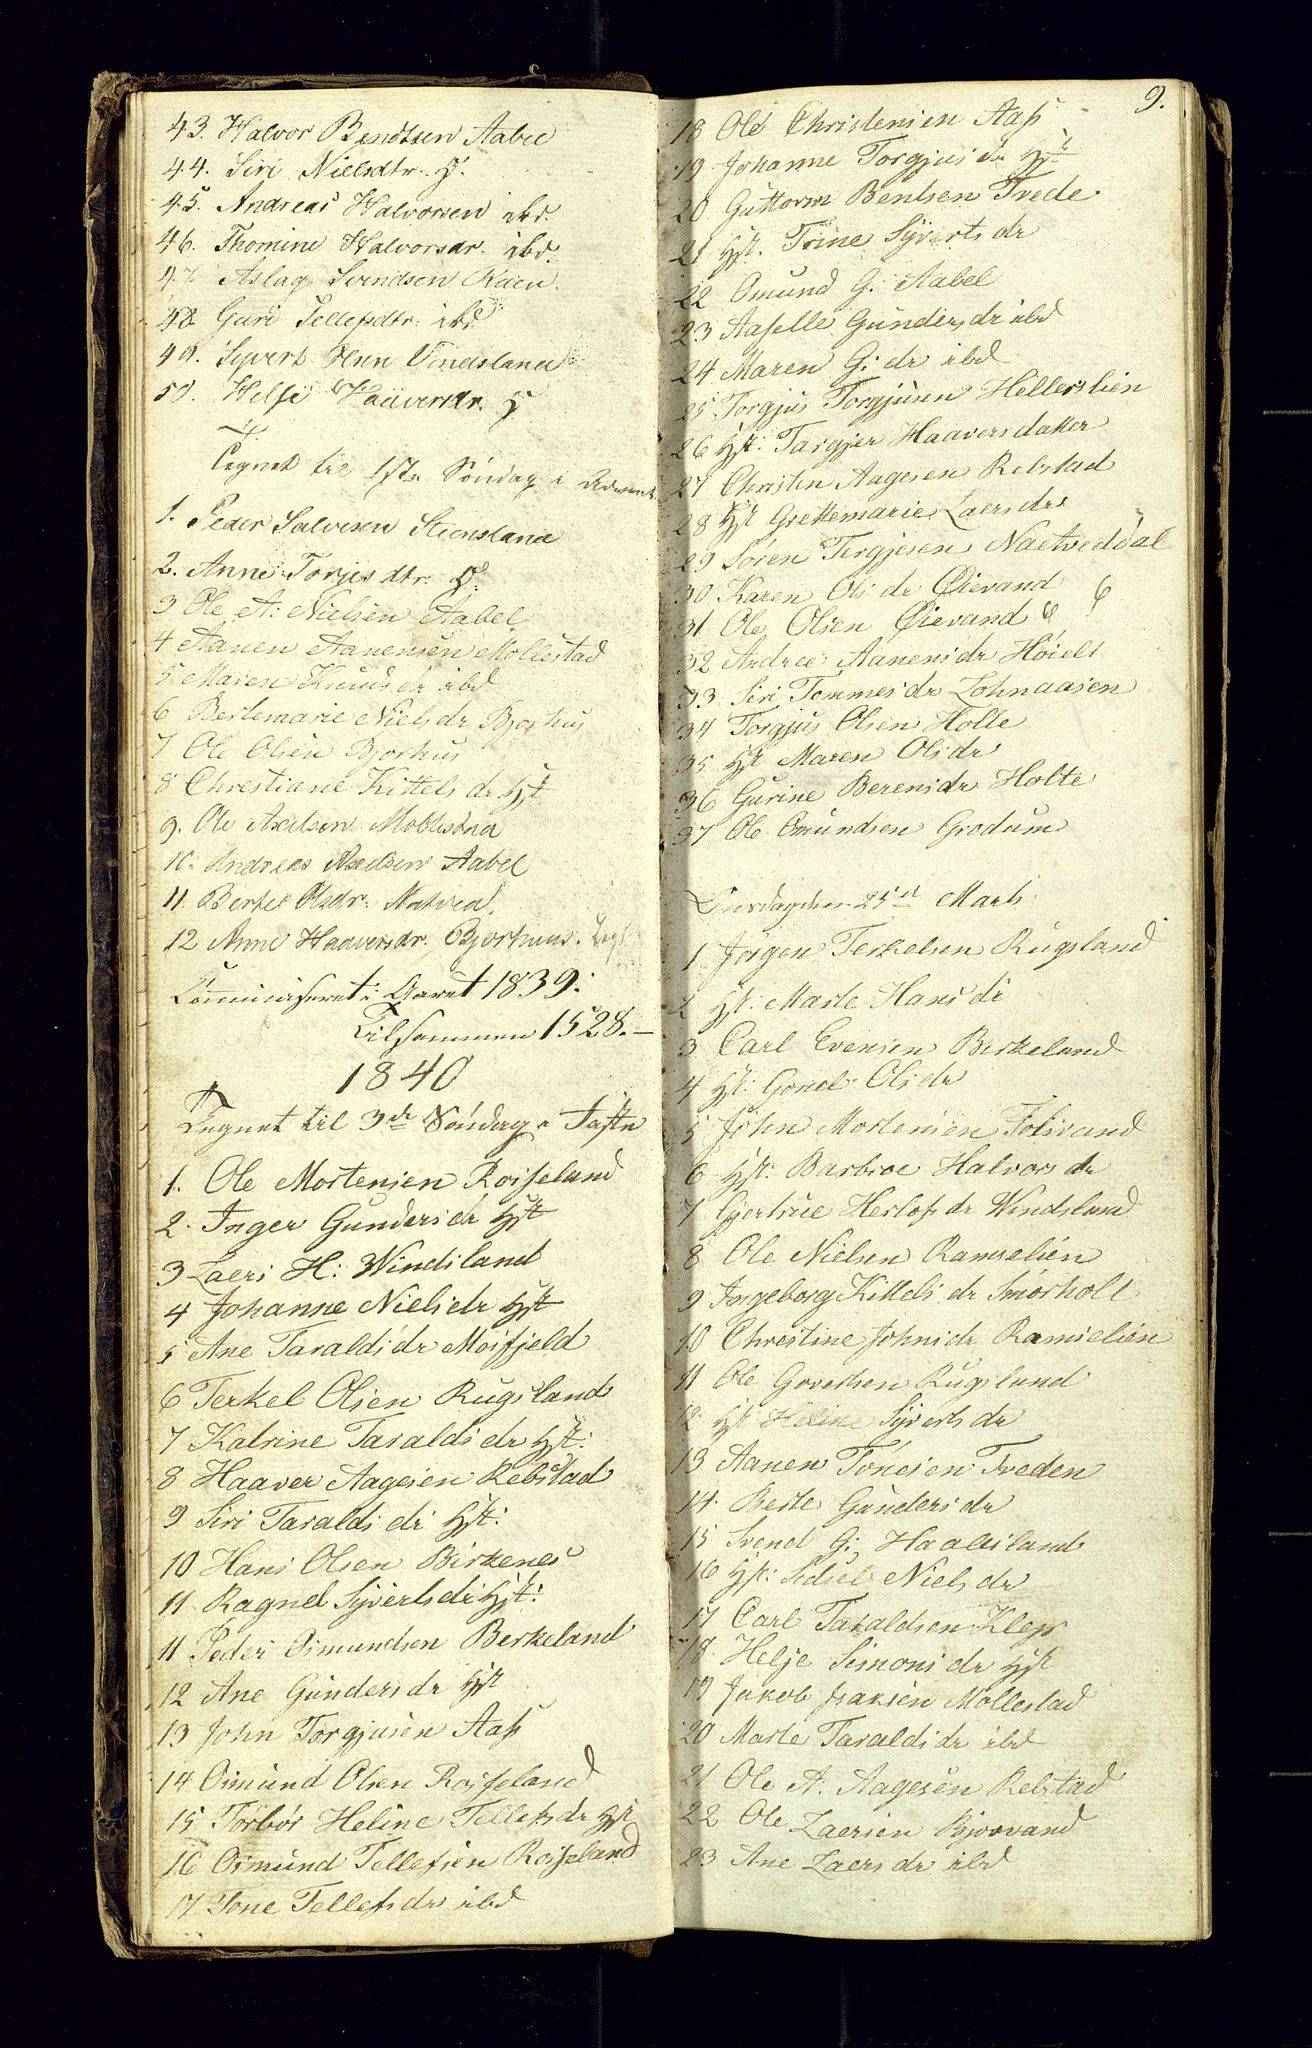 43. Halvor Bendtsen Aabel
44. Siri Nielsdtr. H.
45. Andreas Halvorsen ibd.
46. Thomine Halvorsdr. ibd.
47. Aslag Svendsen
48. Guri Tellefsdtr. ibd.
49. Syvert Vindsland
50. Helje Haaversdr. H
Tegnet til 1ste Söndag i Advent
1. Peder Salvesen Steensland
2. Anne Torjesdtr. H.
3 Ole A. Nielsen Aabel
4 Aanen Aanensen Mollestad
5 Maren Knuds dr ibd
6 Bertemarie Niels dr Bjorhus
7 Ole Olsen Bjorhus
8 Christiane Kittels dr Hst
9. Ole Axelsen
10. Andreas Axelsen Aabel
11. Berte Olsdr. Natved.
12 Anne Haaversdr. Bjorhus.
Communiseret i Aaret 1839:
Tilsammen 1528.—
1840
Tegnet til 3de Söndag i Faste
1. Ole Mortensen Roisseland
2. Inger Gunders dr Hst
3 Laers H: Windsland
4 Johanne Niels dr Hst
5 Ane Taralds dr Moisfjeld
6 Terkel Olsen Rugsland
7 Katrine Taralds dr Hst:
8 Haaver Aagesen Rebstad
9 Siri Taralds dr Hst:
10 Hans Olsen Birkenes
11 Ragnel Syverts dr Hst:
11 Peder Osmundsen Berkeland
12 Ane Gunders dr Hst
13 John Torgjusen Aas
14 Osmund Olsen Roisseland
15 Torbor Heline Tellefs dr Hst
16 Osmund Tellefsen Roisseland
17 Tone Tellefs dr ibd
9.
18 Ole Christensen Aas
19 Johanne Torgjus dr Hst
20 Guttorm Bentsen Tvede
21 Hst. Trine Syverts dr
22 Omund G. Aabel
23 Aaselle Gunders dr ibd
24 Maren G: dr ibd
25 Torgjus Torgjusen Hellerslien
26 Hst: Targjer Haavers datter
27 Christen Aagesen Rebstad
28 Hst Grettemarie Laers dr
29 Sören Tergjesen Naetveddal
30 Karen Ols dr Øievand
31 Ole Olsen Øievand
32 Andree Aanens dr Höiebt
33 Siri Tommes dr Lohnaasen
34 Torgjus Olsen Holte
35 Hst Maren Ols dr
36 Gurine Berens dr Holte
37 Ole Omundsen Grodum
Onsdag den 25de Marts
1 Jörgen Terkelsen Rugsland
2 Hst. Marte Hans dr
3 Carl Evensen Berkeland
4 Hst: Gonel Ols dr
5 John Mortensen Folivand
6 Hst: Barbroe Halvors dr
7 Gjertrue Herlofs dr Windsland
8 Ole Nielsen Ramselien
9 Ingeborg Kittels dr Smorholt
10 Christine Johns dr Ramselien
11 Ole Govertsen Rugsland
12 Hst Heline Syverts dr
13 Aanen Tönesen Tveden
14. Berte Gunders dr
15 Svend G: Haabesland
16 Hst: Sidsel Niels dr
17 Carl Taraldsen Klep
18 Helje Simons dr Hst
19 Jakob Isaksen Mollestad
20 Marte Taralds dr ibd
21 Ole A. Aagesen Rebstad
22 Ole Laersen Bjorvand
23 Ane Laers dr ibd